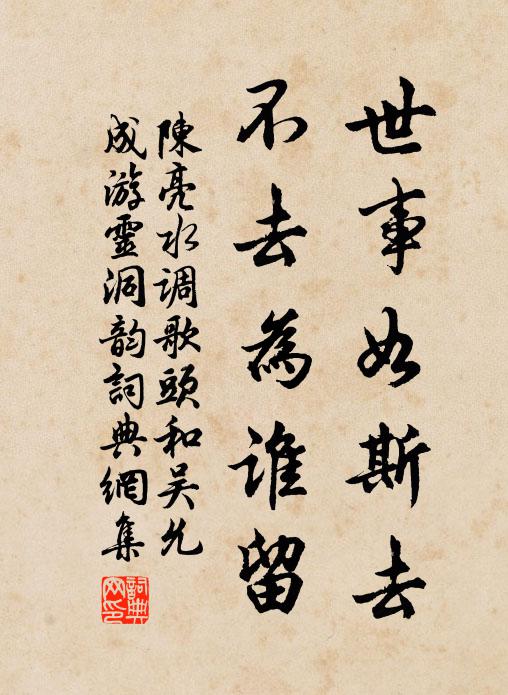 世事如斯去
不去為誰留
陳亮水調歌頭和吳允
成游靈洞韵詞典網集
詞典網印